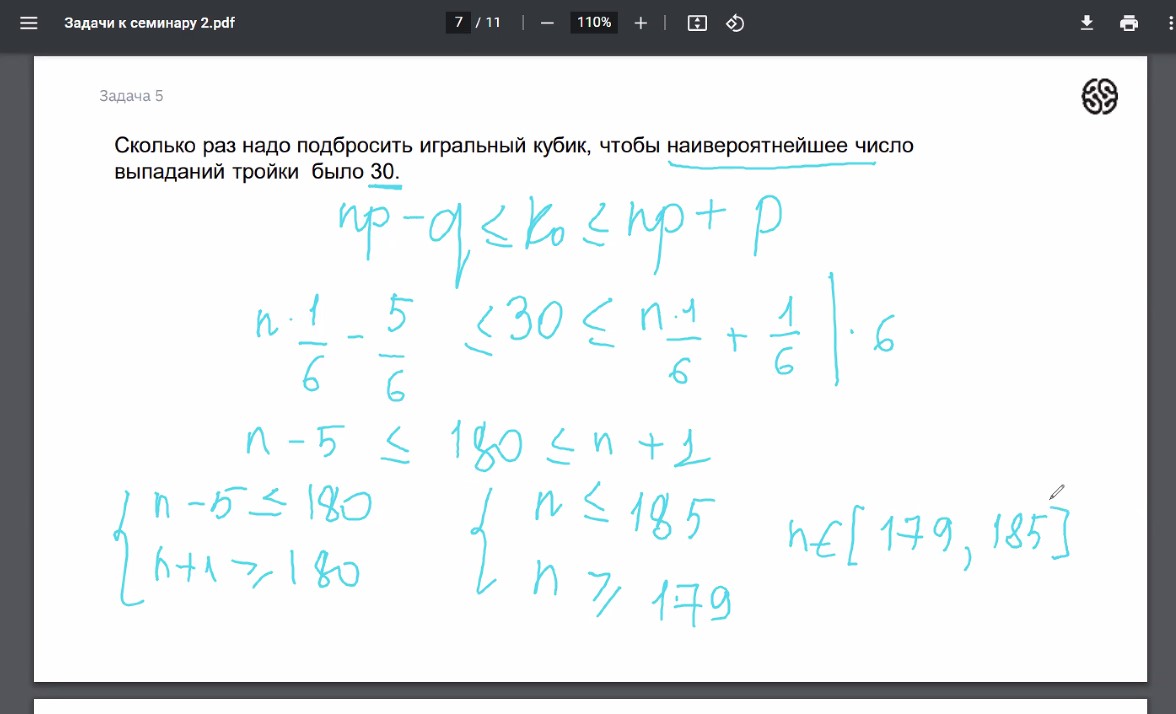 Задачи к семинару 2.pdf 7 / 11 110%
Задача 5
Сколько раз надо подбросить игральный кубик, чтобы наивероятнейшее число
выпаданий тройки было 30.
np - q ≤ k₀ ≤ np + p
n · 1/6 - 5/6 ≤ 30 ≤ n·1/6 + 1/6 | · 6
n - 5 ≤ 180 ≤ n + 1
{ n - 5 ≤ 180 { n ≤ 185 n ∈ [179, 185]
n + 1 ≥ 180 n ≥ 179